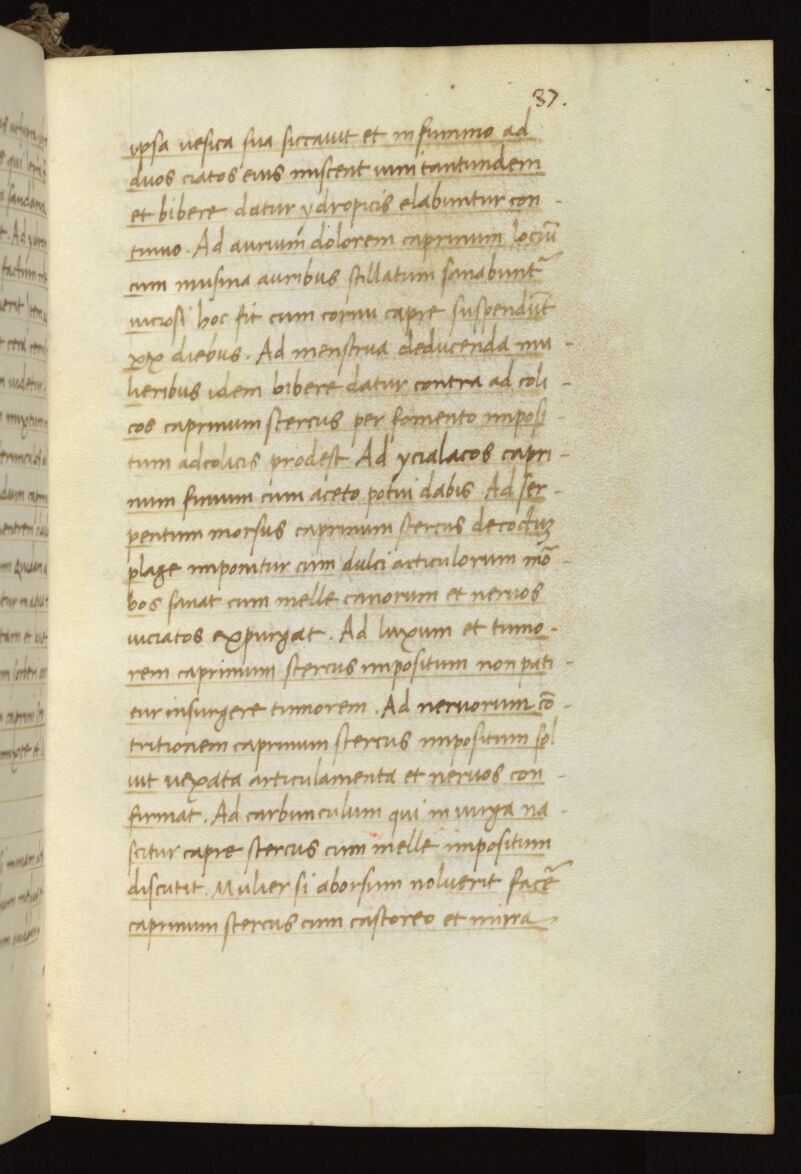 87.
ipsa uesica sua siccauit et in fummo ad
duos ciatos eius miscent uini tantundem
et bibere datur ydropicis elabuntur con -
tinuo. Ad aurium dolorem caprinum lociũ
cum musina auribus stillatum sanabunt᷑
uiciosi hoc fit cum cornu capre suspendũt
xıx diebus. Ad menstrua deducenda mu -
lieribus idem bibere datur contra ad coli -
cos caprinum stercus per fomento imposi -
tum adcolicis prodest Ad ycialacos capri -
num fimum cum aceto potui dabis Ad ser -
pentum morsus caprinum stercus decoctuꝫ
plage imponitur cum dulci articulorum mõ -
bos sanat cum melle canorum et neruos
uiciatos expurgat. Ad luxum et tumo -
rem caprinum stercus impositum non pati -
tur insurgere tumorem. Ad neruorum cõ -
tritionem caprinum stercus impositum sol
uit uexata articulamenta et neruos con -
firmat. Ad carbunculum qui in uirga na -
scitur capre stercus cum melle impositum
discutit. Mulier si aborsum noluerit facẽ
caprinum stercus cum castoreo et mirra